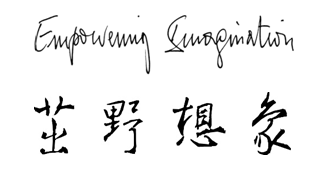 Empowering Imagination
茁野想象